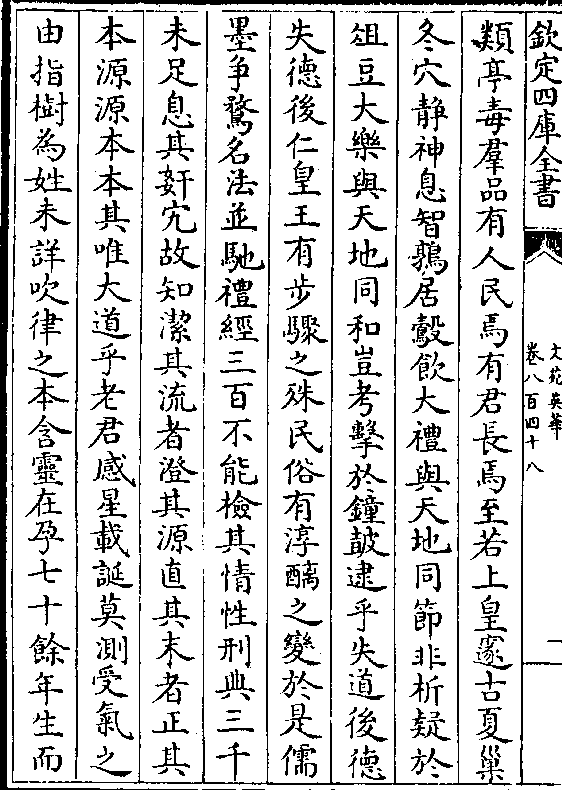 欽定四庫全書
文苑英華
卷八百四十八
二
類亭毒羣品有人民焉有君長焉至若上皇邃古夏巢
冬穴静神息智鶉居鷇飲大禮與天地同節非析疑於
俎豆大樂與天地同和豈考擊於鐘鼓逮乎失道後德
失德後仁皇王有步驟之殊民俗有淳醨之變於是儒
墨争騖名法並馳禮經三百不能檢其情性刑典三千
未足息其姧宄故知潔其流者澄其源直其末者正其
本源源本本其唯大道乎老君感星載誕莫測受氣之
由指樹為姓未詳吹律之本含靈在孕七十餘年生而